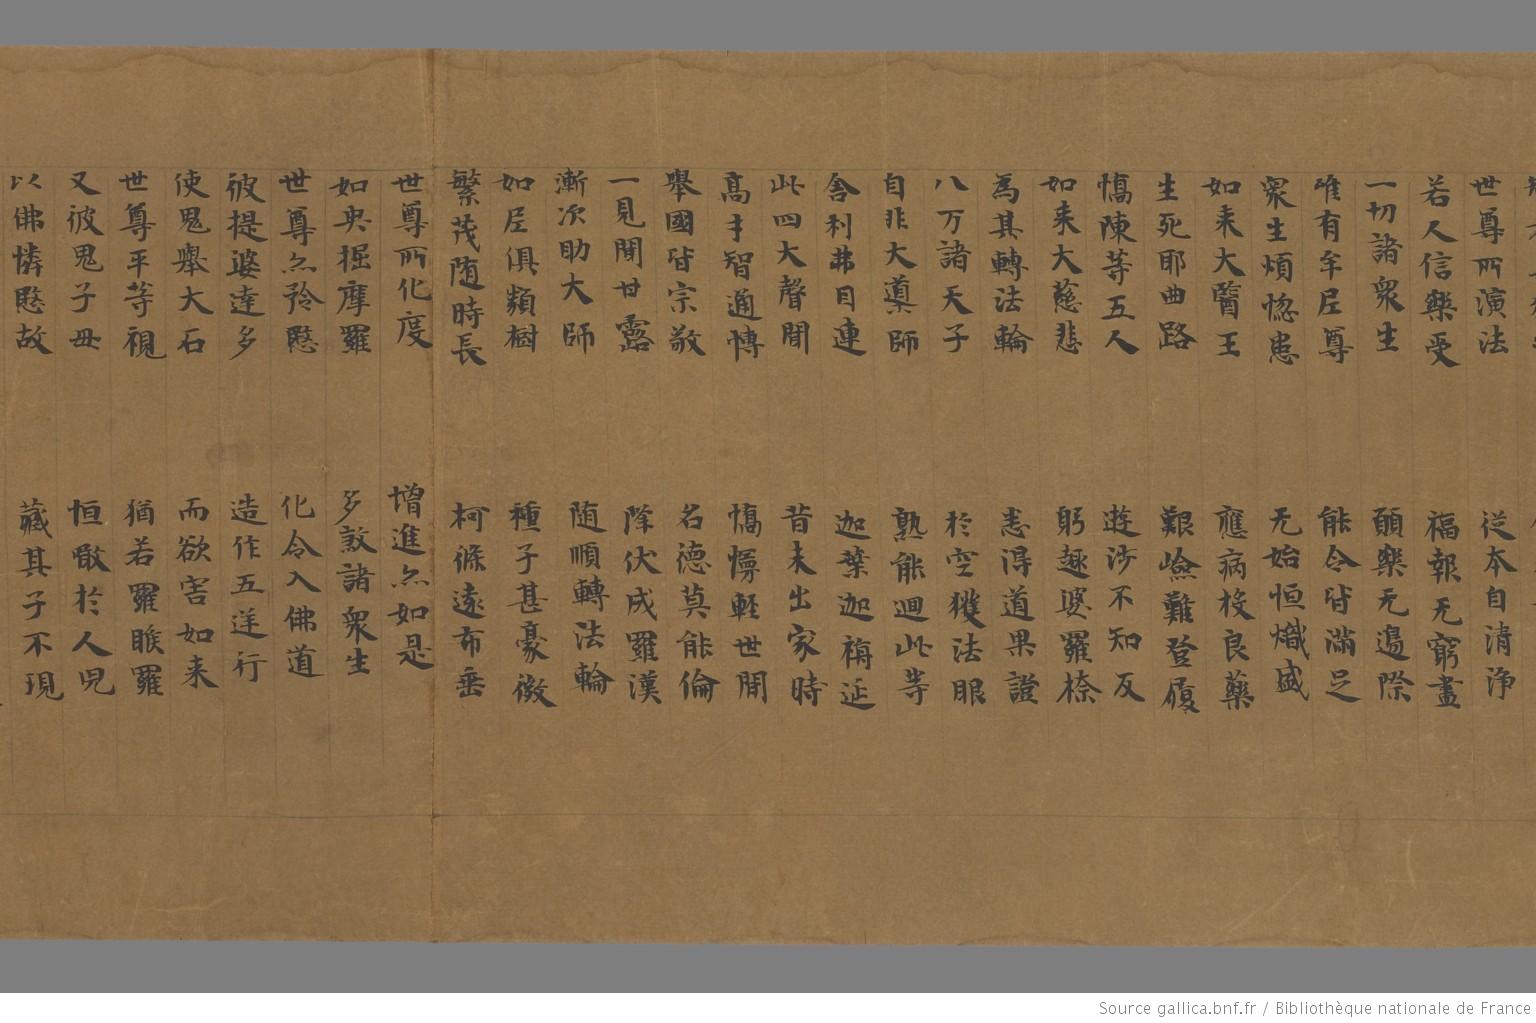 世尊所演法　從本自清淨
若人信樂受　福報无窮盡
一切諸衆生　願樂无邊際
唯有牟尼尊　能令皆滿足
衆生煩惱患　无始恒熾盛
如来大醫王　應病授良藥
生死耶曲路　艱嶮難登履
憍陳等五人　遊涉不知反
如来大慈悲　躬趣婆羅㮈
為其轉法輪　悉得道果證
八万諸天子　於空獲法眼
自非大導師　孰能迴此等
舍利弗目連　迦葉迦旃延
此四大聲聞　昔未出家時
高才智通博　憍慢輕世間
舉國皆宗敬　名德莫能倫
一見聞甘露　降伏成羅漢
漸次助大師　随順轉法輪
如尼俱類樹　種子甚豪微
繁茂随時長　柯條遠布垂
世尊所化度　增進亦如是
如央掘摩羅　多煞諸衆生
世尊亦矜愍　化令入佛道
彼提婆達多　造作五逆行
使鬼舉大石　而欲害如来
世尊平等視　猶若羅睺羅
又彼鬼子母　恒噉於人兒
以佛憐愍故　藏其子不現
Source gallica.bnf.fr / Bibliothèque nationale de France